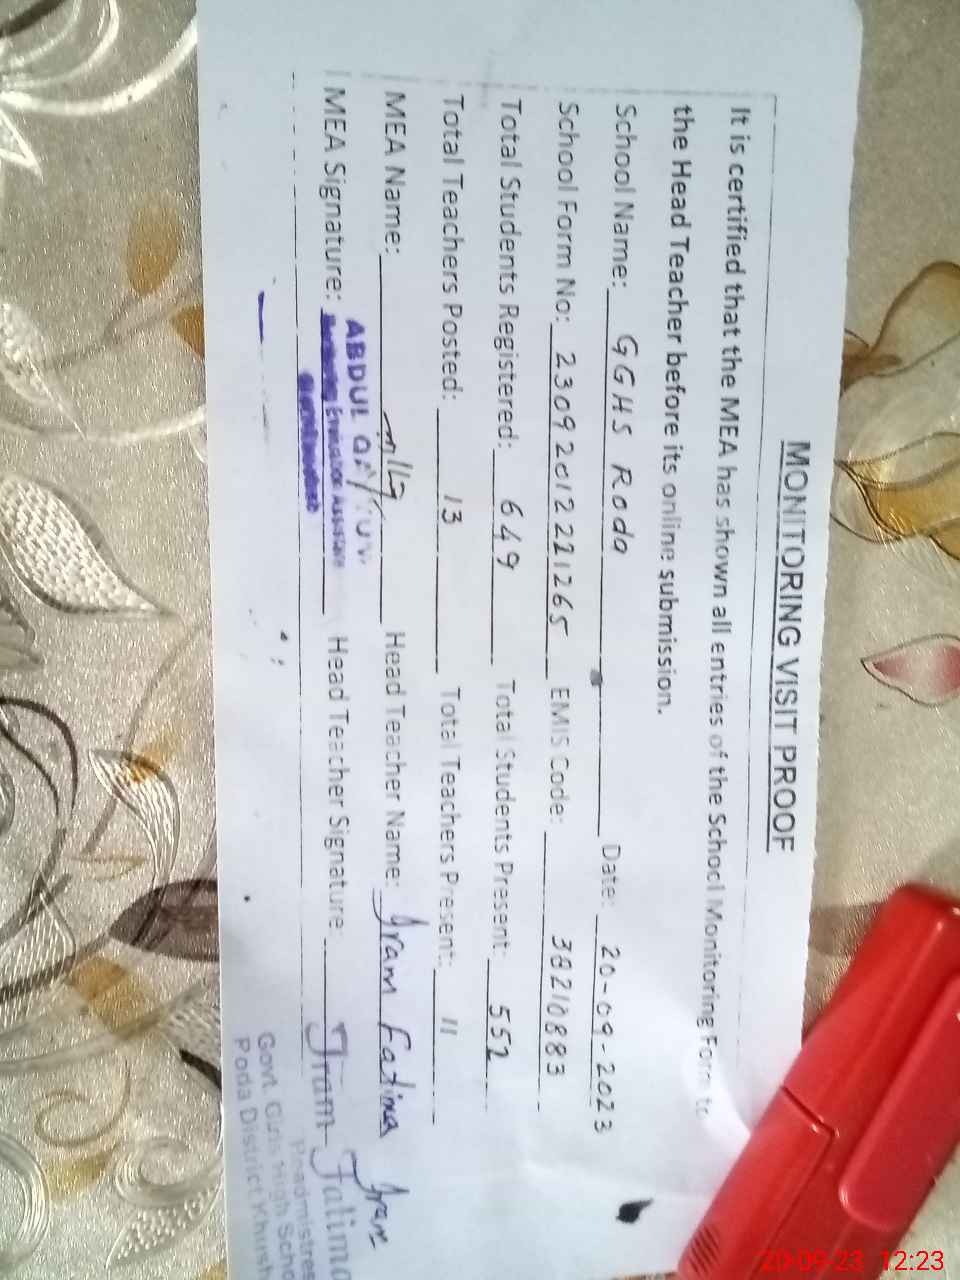 MONITORING VISIT PROOF
It is certified that the MEA has shown all entries of the School Monitoring Form to
the Head Teacher before its online submission.
School Name: GGHS Roda Date: 20-09-2023
School Form No: 23092012221265 EMIS Code: 38210883
Total Students Registered: 649 Total Students Present: 552
Total Teachers Posted: 13 Total Teachers Present: 11
MEA Name: Head Teacher Name: Iram Fatima Iram
MEA Signature: ABDUL QAYYUM Head Teacher Signature: Iram Fatima
Monitoring Evaluation Assistant
Headmistres
Govt. Girls High Scho
Roda District Khush
20-09-23 12:23